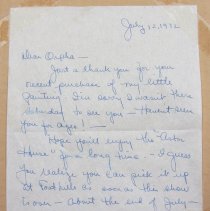 July 12, 1972
Dear Orpha —
Just a thank you for your
recent purchase of my little
painting — I'm sorry I wasn't there
Saturday to see you — Haven't seen
you for ages! —
Hope you'll enjoy the "Astor
House" for a long time. — I guess
you realize you can pick it up
at Foothills as soon as the show
is over — about the end of July —